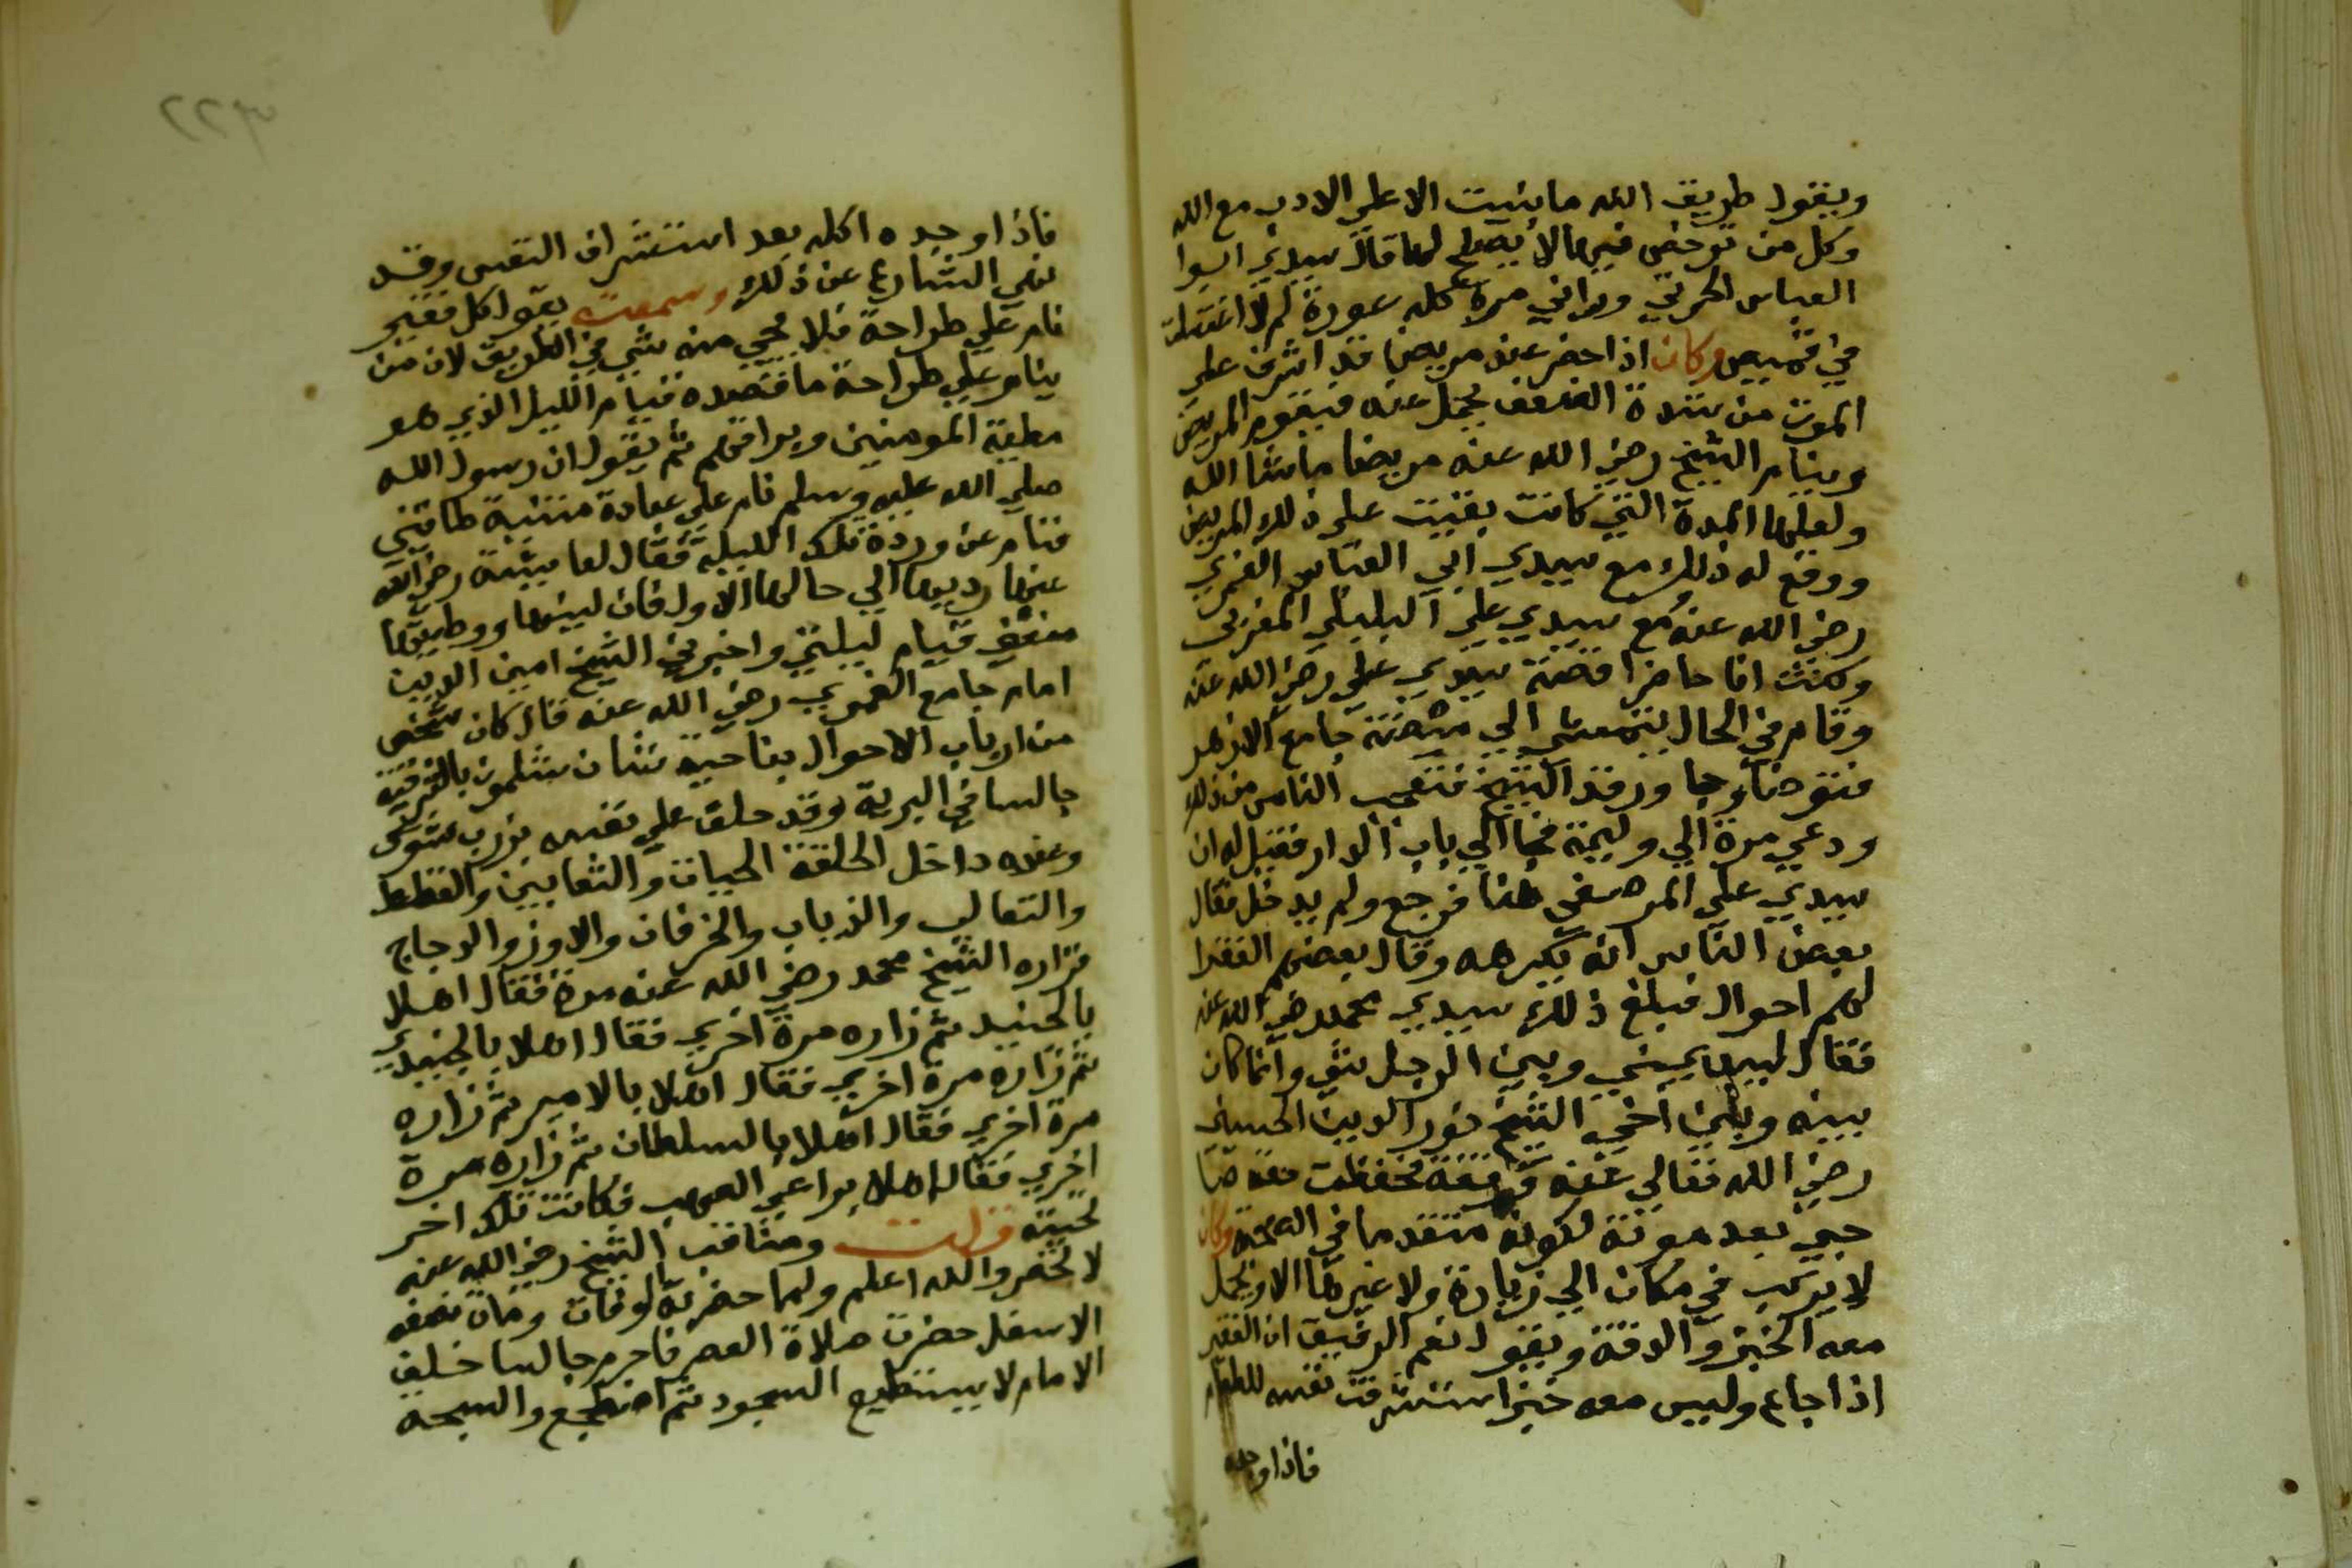 ويقول طريق الله ما بنيت الا على الادب مع الله
وكل من ترخص فيها لا يصلح لها قال سيدي ابوا
العباس الحريثي وراني مرة كله عورة لم لا اغتسلت
في قميص وكان اذا حضر عند مريض قد اشرف على
الموت من شدة الضعف يحمل عنه فيقوم المريض
وينام الشيخ رضي الله عنه مريضا ما شا الله
ولعلها المدة التي كانت بقيت على ذلك المريض
ووقع له ذلك مع سيدي ابي العباس الغمري
رضي الله عنه ومع سيدي علي البلبلي المغربي
وكنت انا حاضرا قصة سيدي علي رضي الله عنه
وقام في الحال يتمشى الي ميضة جامع الازهر
فتوضا وجا ورقد الشيخ فتعجب الناس من ذلك
ودعي مرة الي وليمة فجا الي باب الدار فقيل له ان
سيدي علي المرصفي هنا فرجع ولم يدخل فقال
بعض الناس انه يكرهه وقال بعضهم الفقرا
لهم احوال فبلغ ذلك سيدي محمد رضي الله عنه
فقال ليس بيني وبين الرجل شي وانما كان
بينه وبين اخي الشيخ نور الدين الحسني
رضي الله تعالى عنه وقفة فحفظت حق صا
حبي بعد موته لكونه متقدما في الصحبة وكان
لا يركب في مكان الي زيارة ولا غيرها الا ويحمل
معه الخبز والدقة ويقول نعم الرفيق ان الفقير
اذا جاع وليس معه خبز استشرفت نفسه للطعام
فاذا وجده
فاذا وجده اكله بعد استشراف النفس وقد
نهي الشارع عن ذلك وسمعته يقول كل فقير
نام علي طراحة فلا يجي منه شي في الطريق لان من
ينام علي طراحة ما قصده قيام الليل الذي هو
مطية المومنين وبراقهم ثم يقول ان رسول الله
صلي الله عليه وسلم نام علي عباءة مثنية طاقتني
فنام عن ورده تلك الليلة فقال لعايشة رضي الله
عنها رديها الي حالها الاول فان لينها ووطيتها
منعني قيام ليلتي واخبرني الشيخ امين الدين
امام جامع الغمري رضي الله عنه قال كان شخص
من ارباب الاحوال بناحية شان شلمون بالشرقية
جالسا في البرية وقد حلق علي نفسه بزرب شوك
وعنده داخل الحلقة الحيات والثعابين والقطط
والثعالب والذياب والخرفان والاوز والدجاج
فزاره الشيخ محمد رضي الله عنه مرة فقال اهلا
بالجنيد ثم زاره مرة اخري فقال اهلا بالجنيدي
ثم زاره مرة اخري فقال اهلا بالامير ثم زاره
مرة اخري فقال اهلا بالسلطان ثم زاره مرة
اخري فقال اهلا براعي الصهب فكانت تلك اخر
تحيته قلت ومناقب الشيخ رضي الله عنه
لا تحصر والله اعلم ولما حضرته الوفات ومات نصفه
الاسفل حضرت صلاة العصر فاحرم جالسا خلف
الامام لا يستطيع السجود ثم اضطجع والسبحة